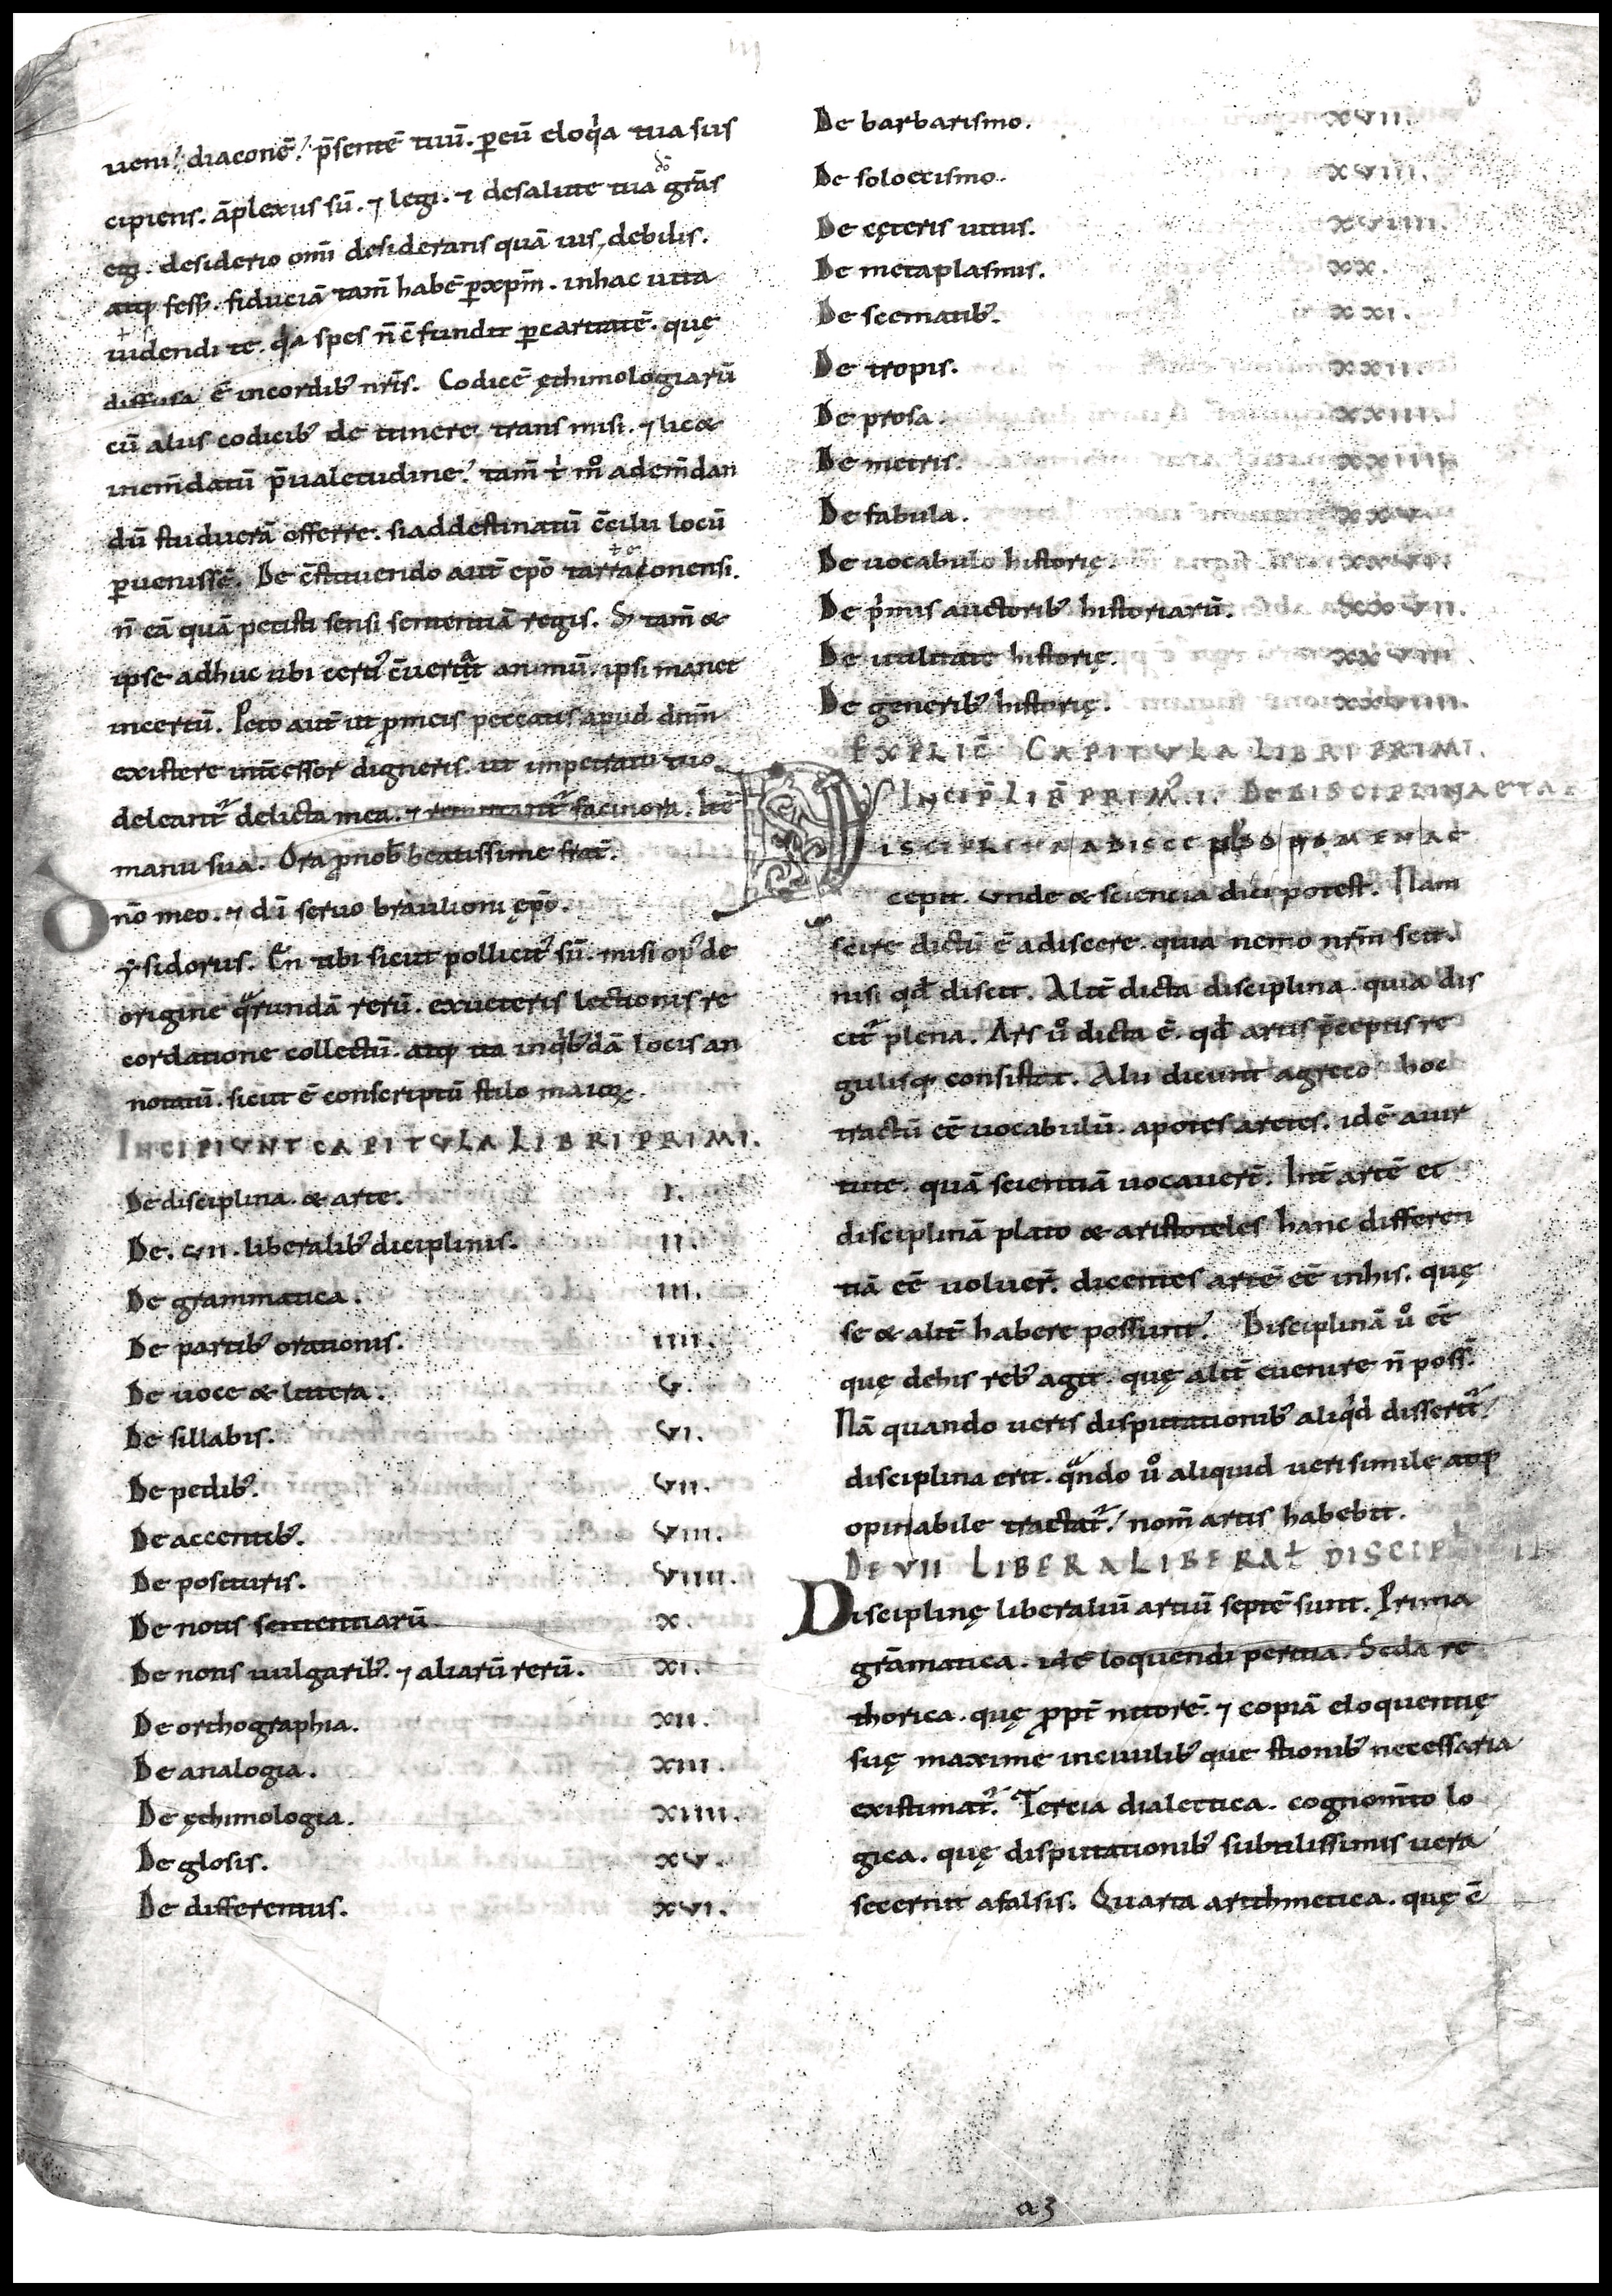 ueni. diaconē. p̄sentē tuū. ꝑ eū eloq̇a tua sus
cipiens. āplexus sū. ⁊ legi. ⁊ desalute tua dō grās
egi. desiderio om̄i desiderans quā uis debilis.
atq; fess᷒. fiduciā tam̄ habē ꝑ xp̄m. inhac uita
uidendi te. q̇a spes n̄ c̄fundit ꝑ caritatē. quę
diffusa ē incordib᷒ nr̄is. Codicē ęthimologiarū
cū aliis codicib᷒ de itinere trans misi. ⁊ lic&
inem̄datū p̄ualetudine. tam̄ t̄ m̊ adem̄dan
dū studuerā offerre. siaddestinatū c̄cilii locū
ꝑuenissē. De c̄stituendo aut̄ ep̄o tarraconensi.
n̄ eā quā petisti sensi sententiā regis. S; tam̄ &
ipse adhuc ubi certi᷒ c̄uertat animū. ipsi manet
incertū. Peto aut̄ ut ꝓ meis peccatis apud dn̄m
existere int̄cessor digneris. ut impetratu tuo
deleant᷒ delicta mea. ⁊ remittant᷒ facinora. Itē
manu sua. Ora ꝓ nob̄ beatissime frat̄.
Dn̄o meo. ⁊ dī seruo braulioni ęp̄o.
ysidorus. En tibi sicut pollicit᷒ sū. misi op᷒ de
origine qͣrundā rerū. exueteris lectionis re
cordatione collectū. atq; ita inq̇b᷒dā locis an
notatū. sicut ē conscriptū stilo maiorꝫ.
INCIPIUNT CAPITULA LIBRI PRIMI.
De disciplina. & arte. I.
De. VII. liberalib᷒ diciplinis. II.
De grammatica. III.
De partib᷒ orationis. IIII.
De uoce & littera. V.
De sillabis. VI.
De pedib᷒. VII.
De accentib᷒. VIII.
De posituris. VIIII.
De notis sententiarū X.
De notis uulgarib᷒. ⁊ aliarū rerū. XI.
De orthographia. XII.
De analogia. XIII.
De ęthimologia. XIIII.
De glosis. XV.
De differentiis. XVI.
De barbarismo. XVII.
De soloecismo. XVIII.
De cęteris uitiis. XVIIII.
De metaplasmis. XX.
De scematib᷒. XXI.
De tropis. XXII.
De prosa. XXIII.
De metris. XXIIII.
De fabula. XXV.
De uocabulo historię. XXVI.
De p̍mis auctorib᷒ historiarū. XXVII.
De utilitate historię. XXVIII.
De generib᷒ historię. XXVIIII.
EXPLIC̄ CAPITULA LIBRI PRIMI.
INCIP̄ LIB̄ PRIM᷒.I. DE DISCIPLINA ET AR
DISCIPLINA A DISCENDO NOMEN AC
cepit. unde & sciencia dici potest. Nam
scire dictū ē adiscere. quia nemo nr̄m scit.
nisi qd̄ discit. Alit̄ dicta disciplina. quia dis
cit᷒ plena. Ars ů dicta ē. qd̄ artis p̄ceptis re
gulisq; consistat. Alii dicunt agreco hoc
tractū eē uocabulū. apotes aretes. idē auir
tute. quā scientiā uocauerr̄. Int̄ artē et
disciplinā plato & aristoteles hanc differen
tiā eē uoluer̄. dicentes artē eē inhis. quę
se & alit̄ habere possunt᷒. Disciplinā ů eē
quę dehis reb᷒ agit. quę alit̄ euenire n̄ poss̄.
Nā quando ueris disputationib᷒ aliq̇d disserit᷒
disciplina erit. qͣndo ů aliquid uerisimile atq;
opinabile tractat᷒. nom̄ artis habebit.
DE VII LIBERALIBERAŁ DISCIPL
Disciplinę liberaliū artiū septē sunt. Prima
grāmatica. idē loquendi peritia. Scda re
thorica. quę ꝓpt̄ nitorē. ⁊ copiā eloquentię
suę maxime inciuilib᷒ que stionib᷒ necessaria
existimat᷒. Tercia dialectica. cognom̄to lo
gica. quę disputationib᷒ subtilissimis uera
secernit afalsis. Quarta arithmetica. quę ē
a3